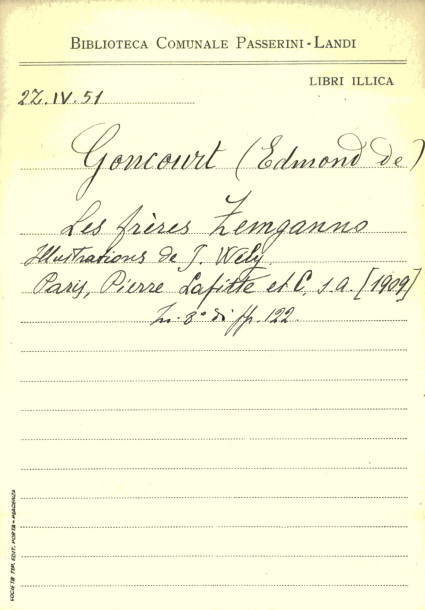 BIBLIOTECA COMUNALE PASSERINI-LANDI
LIBRI ILLICA
22.IV.51
Goncourt (Edmond de)
Les frères Zemganno
Illustrations de J. Wély
Paris, Pierre Lafitte et C, s.a. [1909]
In-8° di pp. 122.
SOCIETÀ TIP. EDIT. PORTA - PIACENZA